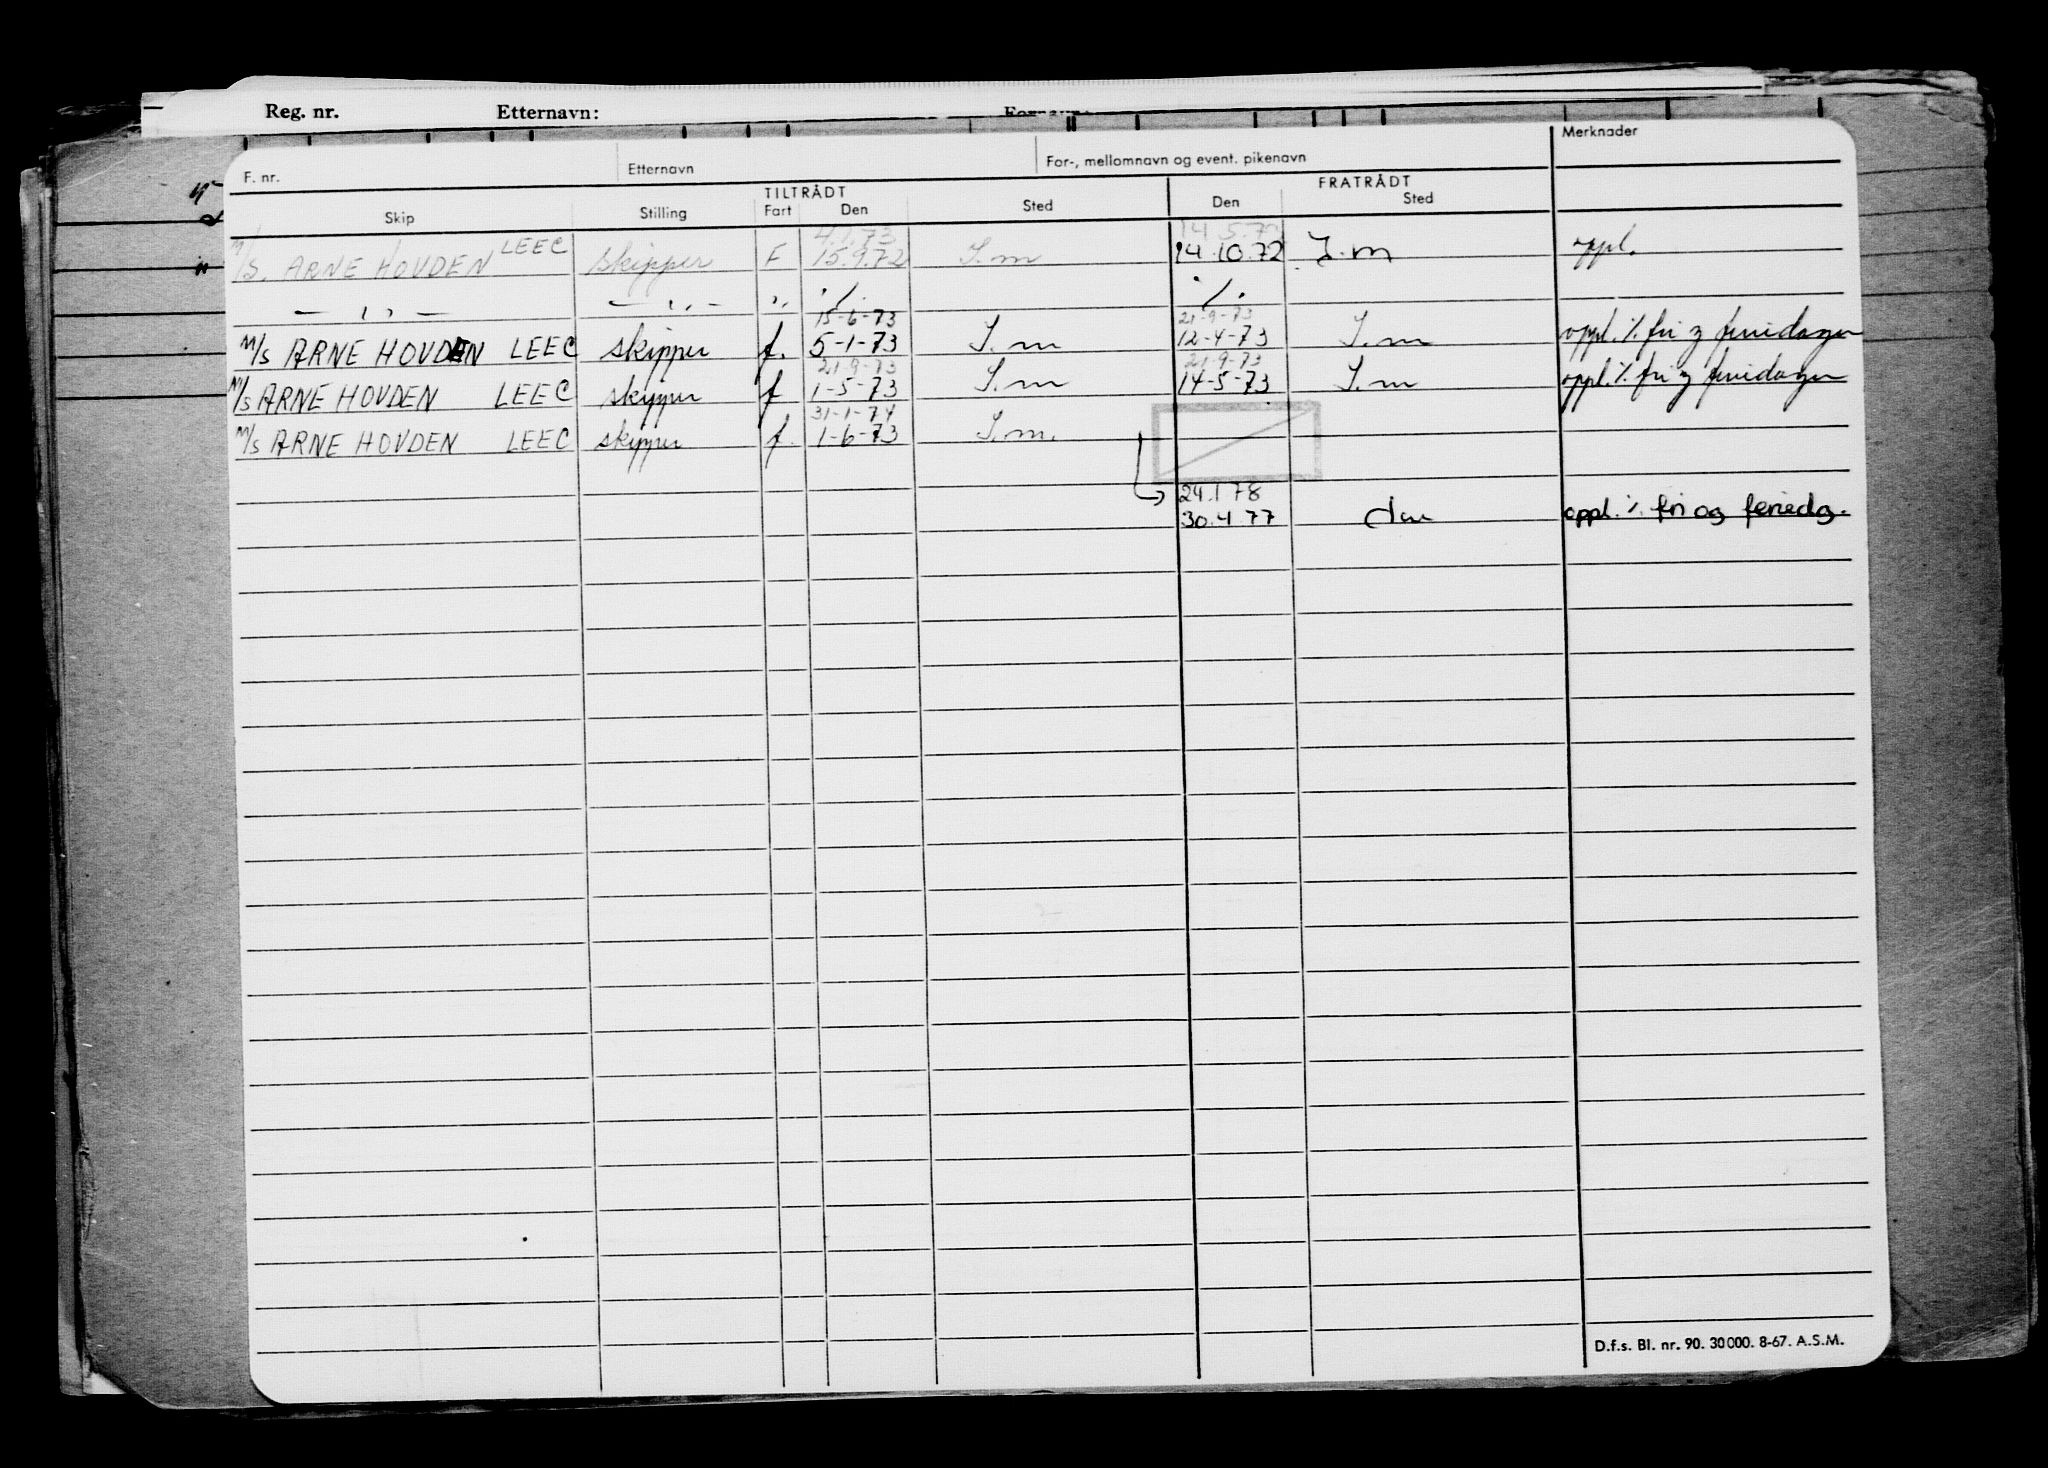 Reg. nr. Etternavn:
F. nr. Etternavn For-, mellomnavn og event. pikenavn Merknader
TILTRÅDT FRATRÅDT
Skip Stilling Fart Den Sted Den Sted
4.1.73 14.5.72
M/S. ARNE HOVDEN LEEC skipper F 15.9.72 I.m 14.10.72 I.m oppl.
— ,, — — ,, — ,, ./. ./.
15-6-73 21-9-73
M/S ARNE HOVDEN LEEC skipper f. 5-1-73 I.m 12-4-73 I.m oppl. % fri og feriedager
21-9-73 21-9-73
M/S ARNE HOVDEN LEEC skipper f 1-5-73 I.m 14-5-73 I.m oppl. % fri og feriedager
31-1-74
M/S ARNE HOVDEN LEEC skipper f. 1-6-73 I.m.
24.1 78
30.4.77 oppl. % fri og feriedg.
D.f.s. Bl. nr. 90. 30000. 8-67. A.S.M.